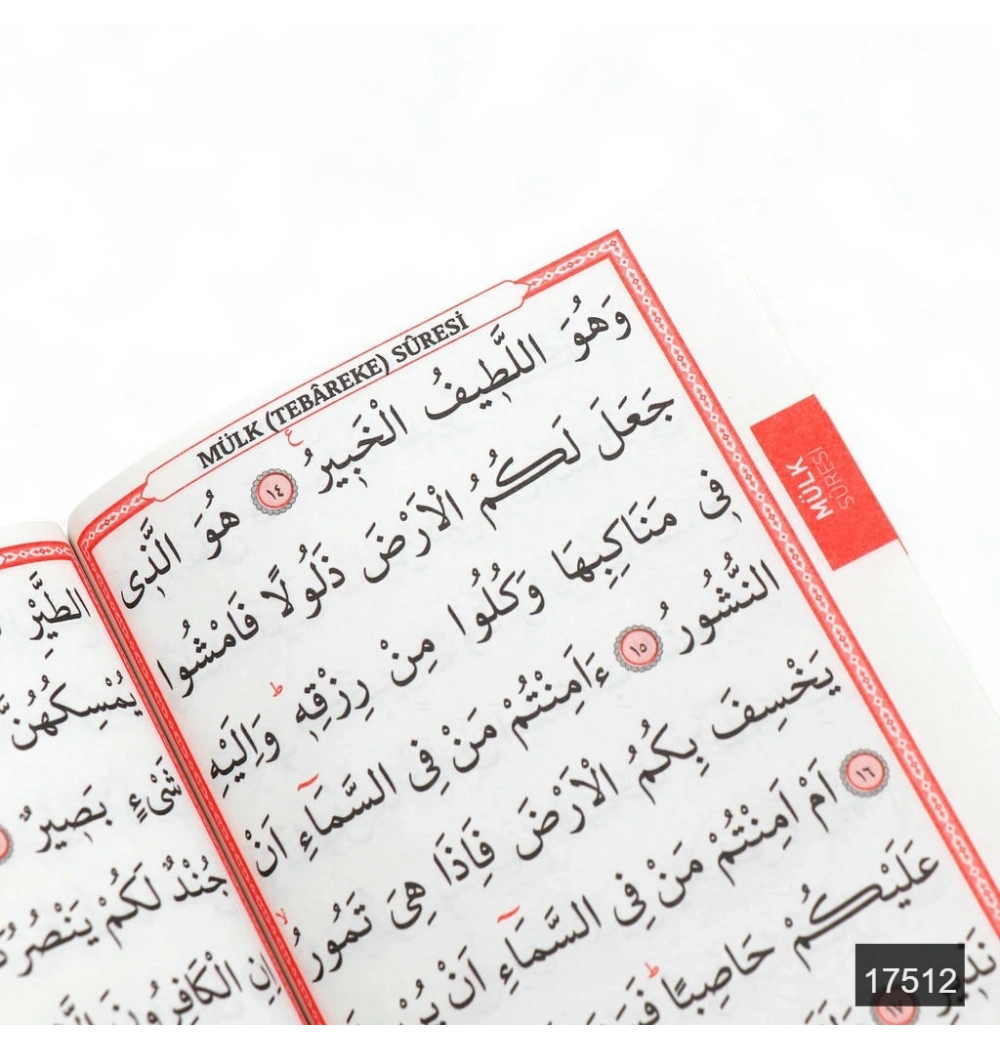 MÜLK (TEBÂREKE) SÛRESİ
وَهُوَ اللَّطِيفُ الْخَبِيرُ ﴿١٤﴾ هُوَ الَّذِى
جَعَلَ لَكُمُ الْاَرْضَ ذَلُولًا فَامْشُوا
فِى مَنَاكِبِهَا وَكُلُوا مِنْ رِزْقِهِ وَاِلَيْهِ
النُّشُورُ ﴿١٥﴾ ءَاَمِنْتُمْ مَنْ فِى السَّمَاءِ اَنْ
يَخْسِفَ بِكُمُ الْاَرْضَ فَاِذَا هِىَ تَمُورُ
﴿١٦﴾ اَمْ اَمِنْتُمْ مَنْ فِى السَّمَاءِ اَنْ
عَلَيْكُمْ حَاصِبًا
نَذِيرِ ﴿١٧﴾
MÜLK
SÛRESİ
الطَّيْرِ
يُمْسِكُهُنَّ
شَىْءٍ بَصِيرٌ
جُنْدٌ لَكُمْ
اِنِ الْكَافِرُونَ
17512